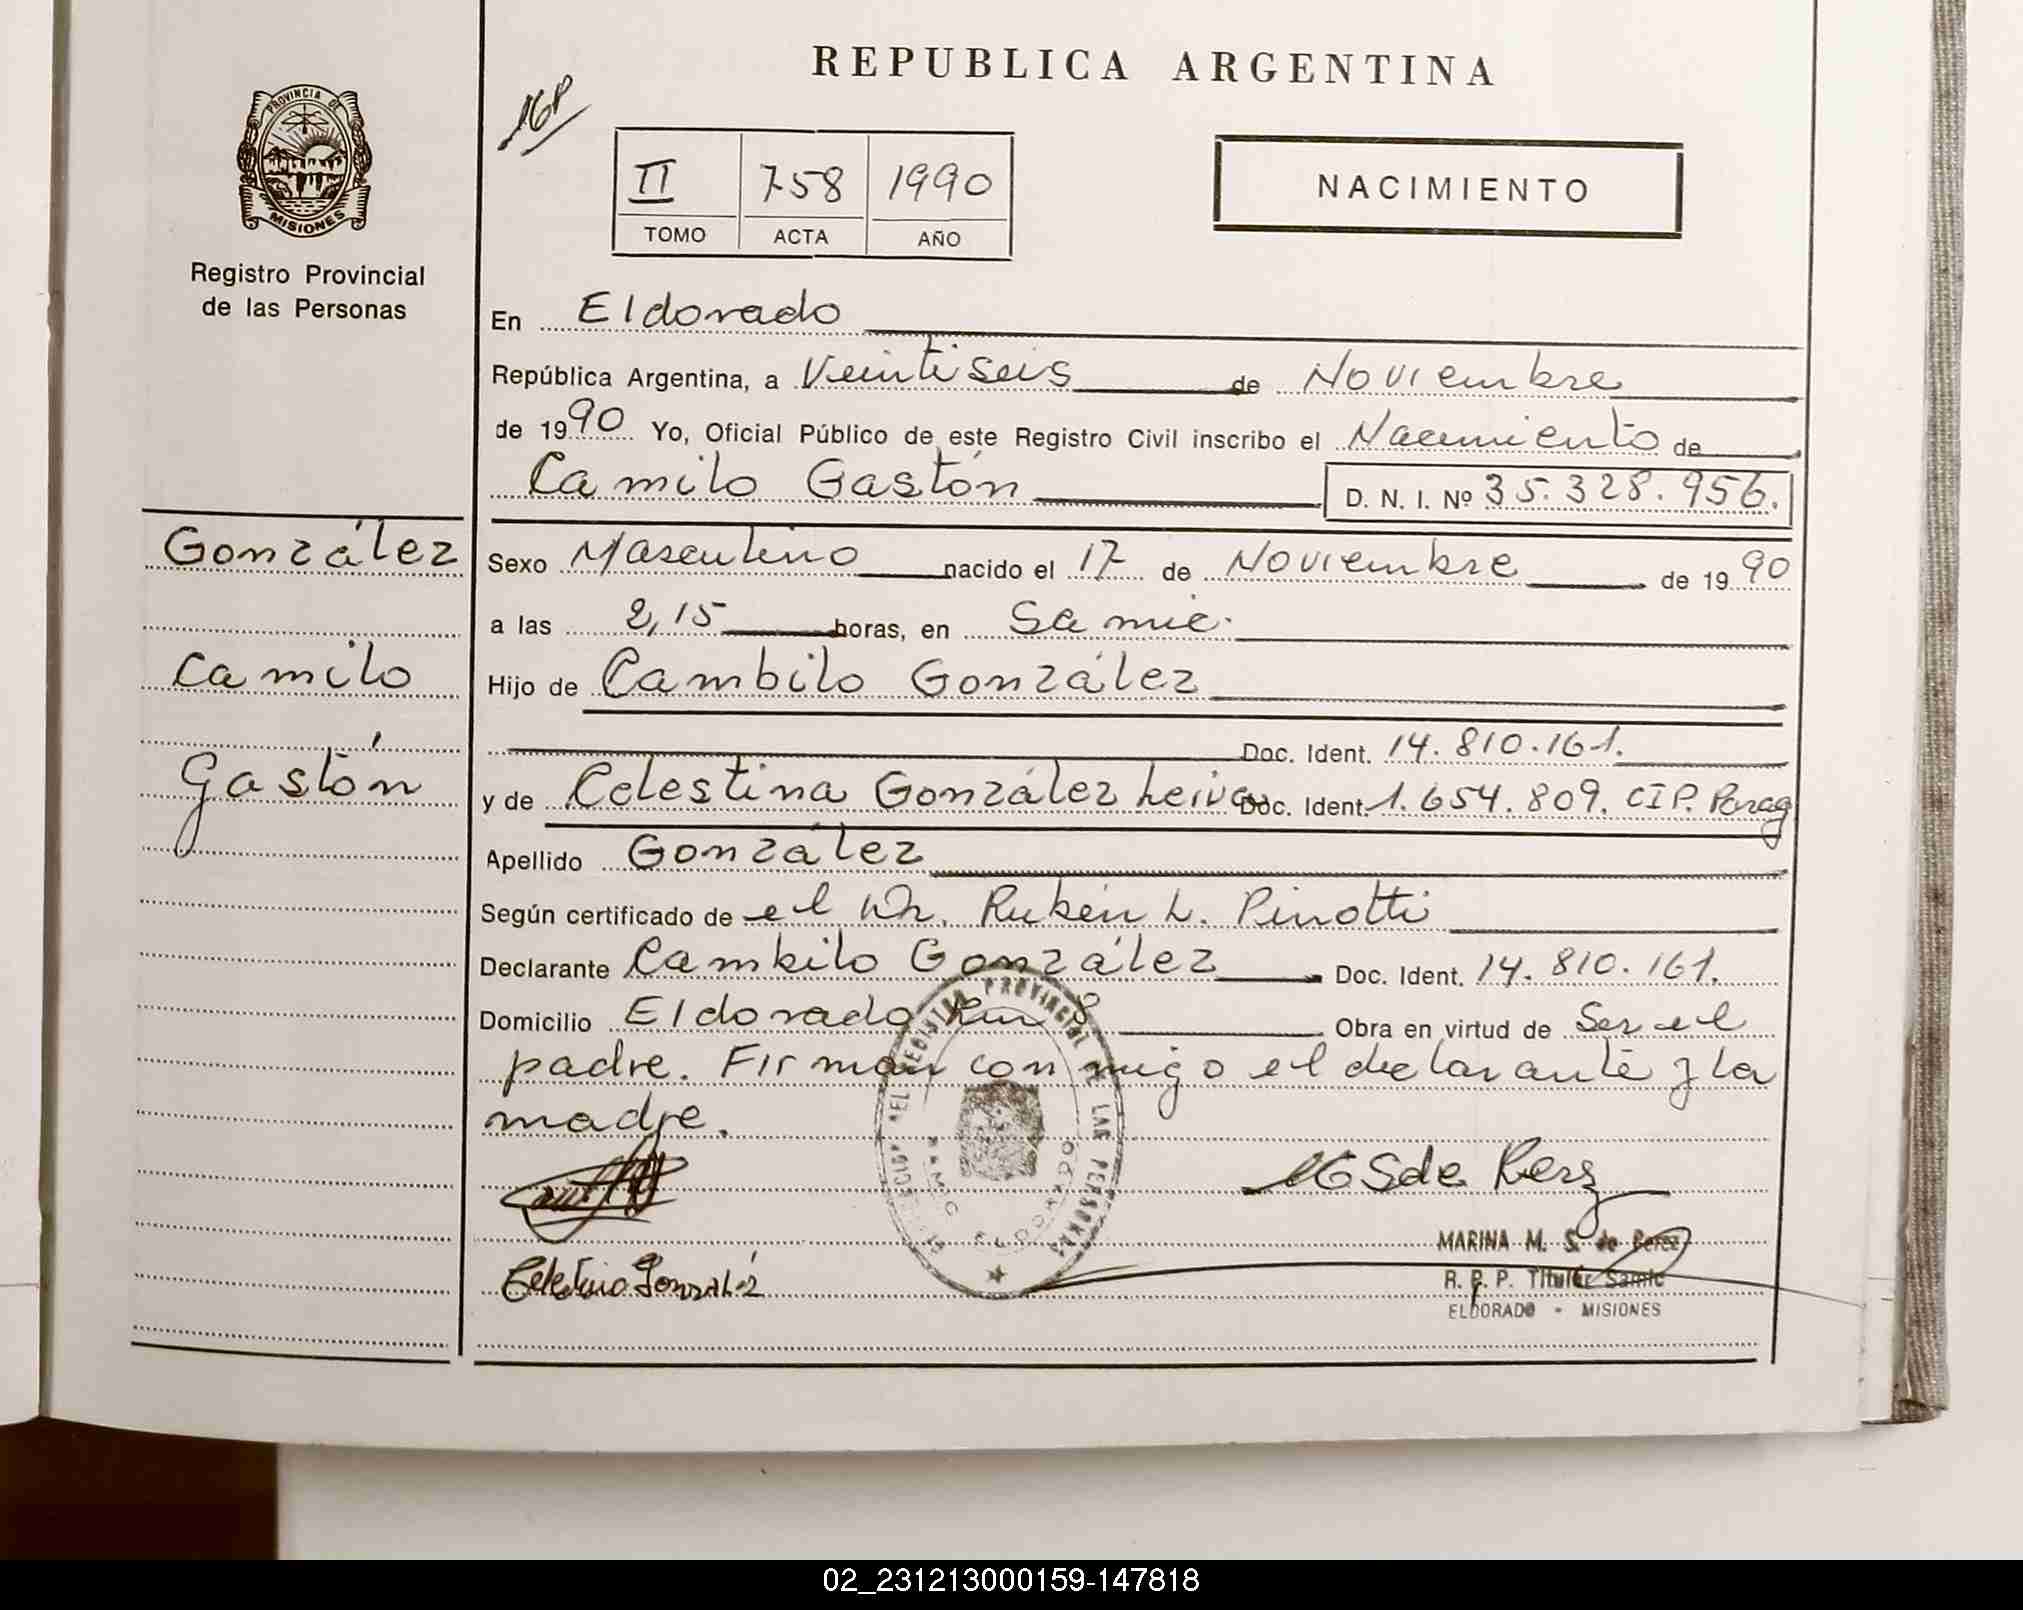 REPUBLICA ARGENTINA
PROVINCIA DE
MISIONES
Registro Provincial
de las Personas
II 758 1990
TOMO ACTA AÑO
NACIMIENTO
En Eldorado
República Argentina, a Veintiseis de Noviembre
de 1990 Yo, Oficial Público de este Registro Civil inscribo el Nacimiento de
Camilo Gastón D. N. I. Nº 35.328.956.
González
Camilo
Gastón
Sexo Masculino nacido el 17 de Noviembre de 1990
a las 2,15 horas, en Samic.
Hijo de Cambilo González
Doc. Ident. 14.810.161.
y de Celestina González Leiva Doc. Ident. 1.654.809. CIP. Parag
Apellido González
Según certificado de el Dr. Rubén L. Pinotti
Declarante Cambilo González Doc. Ident. 14.810.161.
Domicilio Eldorado Km 8 Obra en virtud de Ser el
padre. Firman conmigo el declarante y la
madre.
REGISTRO PROVINCIAL DE LAS PERSONAS
SAMIC ELDORADO
MGSde Perez
Celestina González
MARINA M. S. de Perez
R. P. P. Titular Samic
ELDORADO - MISIONES
02_231213000159-147818